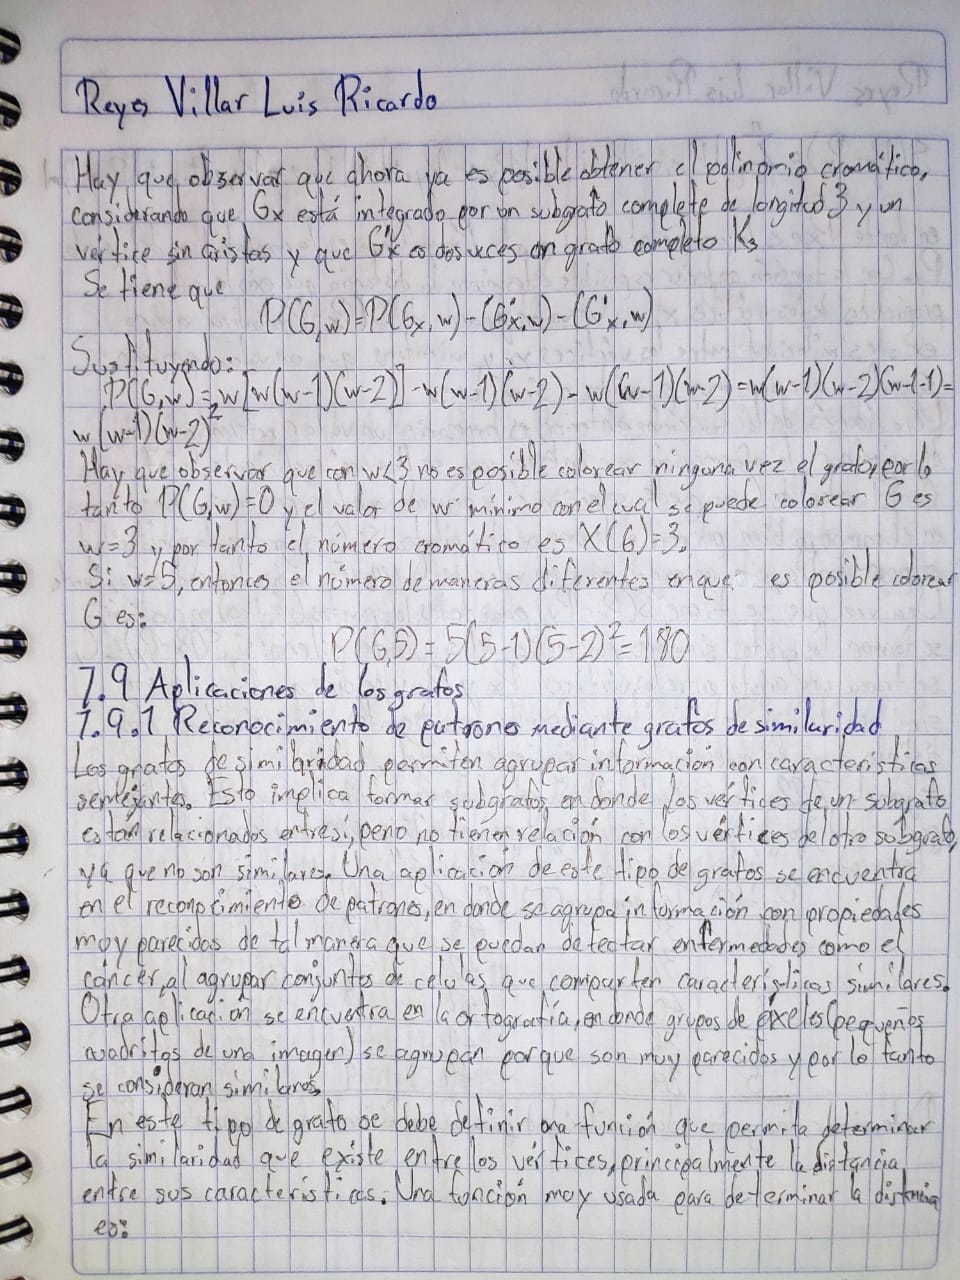 Reyes Villar Luis Ricardo
Hay que observar que ahora ya es posible obtener el polinomio cromático,
considerando que Gx está integrado por un subgrafo complete de longitud 3 y un
vertice sin aristas y que G'x es dos veces un grafo completo K₃
Se tiene que
P(G,w)=P(Gx,w)-(G'x,w)-(G'x,w)
Sustituyendo:
P(G,w)=w[w(w-1)(w-2)]-w(w-1)(w-2)-w(w-1)(w-2)=w(w-1)(w-2)(w-1-1)=
w(w-1)(w-2)²
Hay que observar que con w<3 no es posible colorear ninguna vez el grafo, por lo
tanto P(G,w)=0 y el valor de w mínimo con el cual se puede colorear G es
w=3 y por tanto el número cromático es X(G)=3.
Si w=5, entonces el número de maneras diferentes en que es posible colorear
G es:
P(G,5)=5(5-1)(5-2)²=180
7.9 Aplicaciones de los grafos
7.9.1 Reconocimiento de patrones mediante grafos de similaridad
Los grafos de similaridad permiten agrupar información con características
semejantes. Esto implica formar subgrafos en donde los vértices de un subgrafo
están relacionados entre sí, pero no tienen relación con los vértices del otro subgrafo,
ya que no son similares. Una aplicación de este tipo de grafos se encuentra
en el reconocimiento de patrones, en donde se agrupa información con propiedades
muy parecidas de tal manera que se puedan detectar enfermedades como el
cáncer, al agrupar conjuntos de celulas que comparten características similares.
Otra aplicación se encuentra en la ortografía, en donde grupos de pixeles (pequeños
cuadritos de una imagen) se agrupan porque son muy parecidos y por lo tanto
se consideran similares.
En este tipo de grafo se debe definir una función que permita determinar
la similaridad que existe entre los vértices, principalmente la distancia
entre sus características. Una función muy usada para determinar la distancia
es: